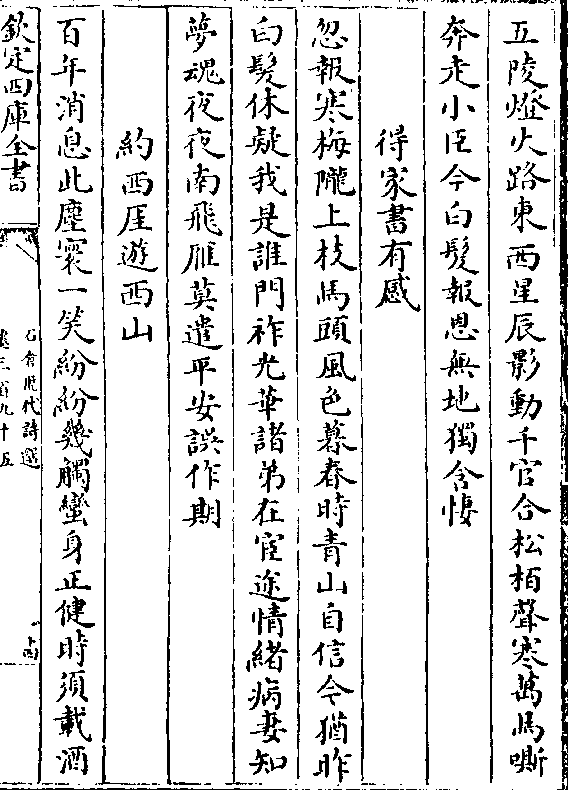 五陵燈火路東西星辰影動千官合松栢聲寒萬馬嘶
奔走小臣今白髮報恩無地獨含悽
得家書有感
忽報寒梅隴上枝馬頭風色暮春時青山自信今猶昨
白髮休疑我是誰門祚光華諸弟在宦途情緒病妻知
夢魂夜夜南飛雁莫遣平安誤作期
約西厓遊西山
百年消息此塵寰一笑紛紛幾觸蠻身正健時須載酒
欽定四庫全書
石倉歷代詩選
卷三百九十五
十四